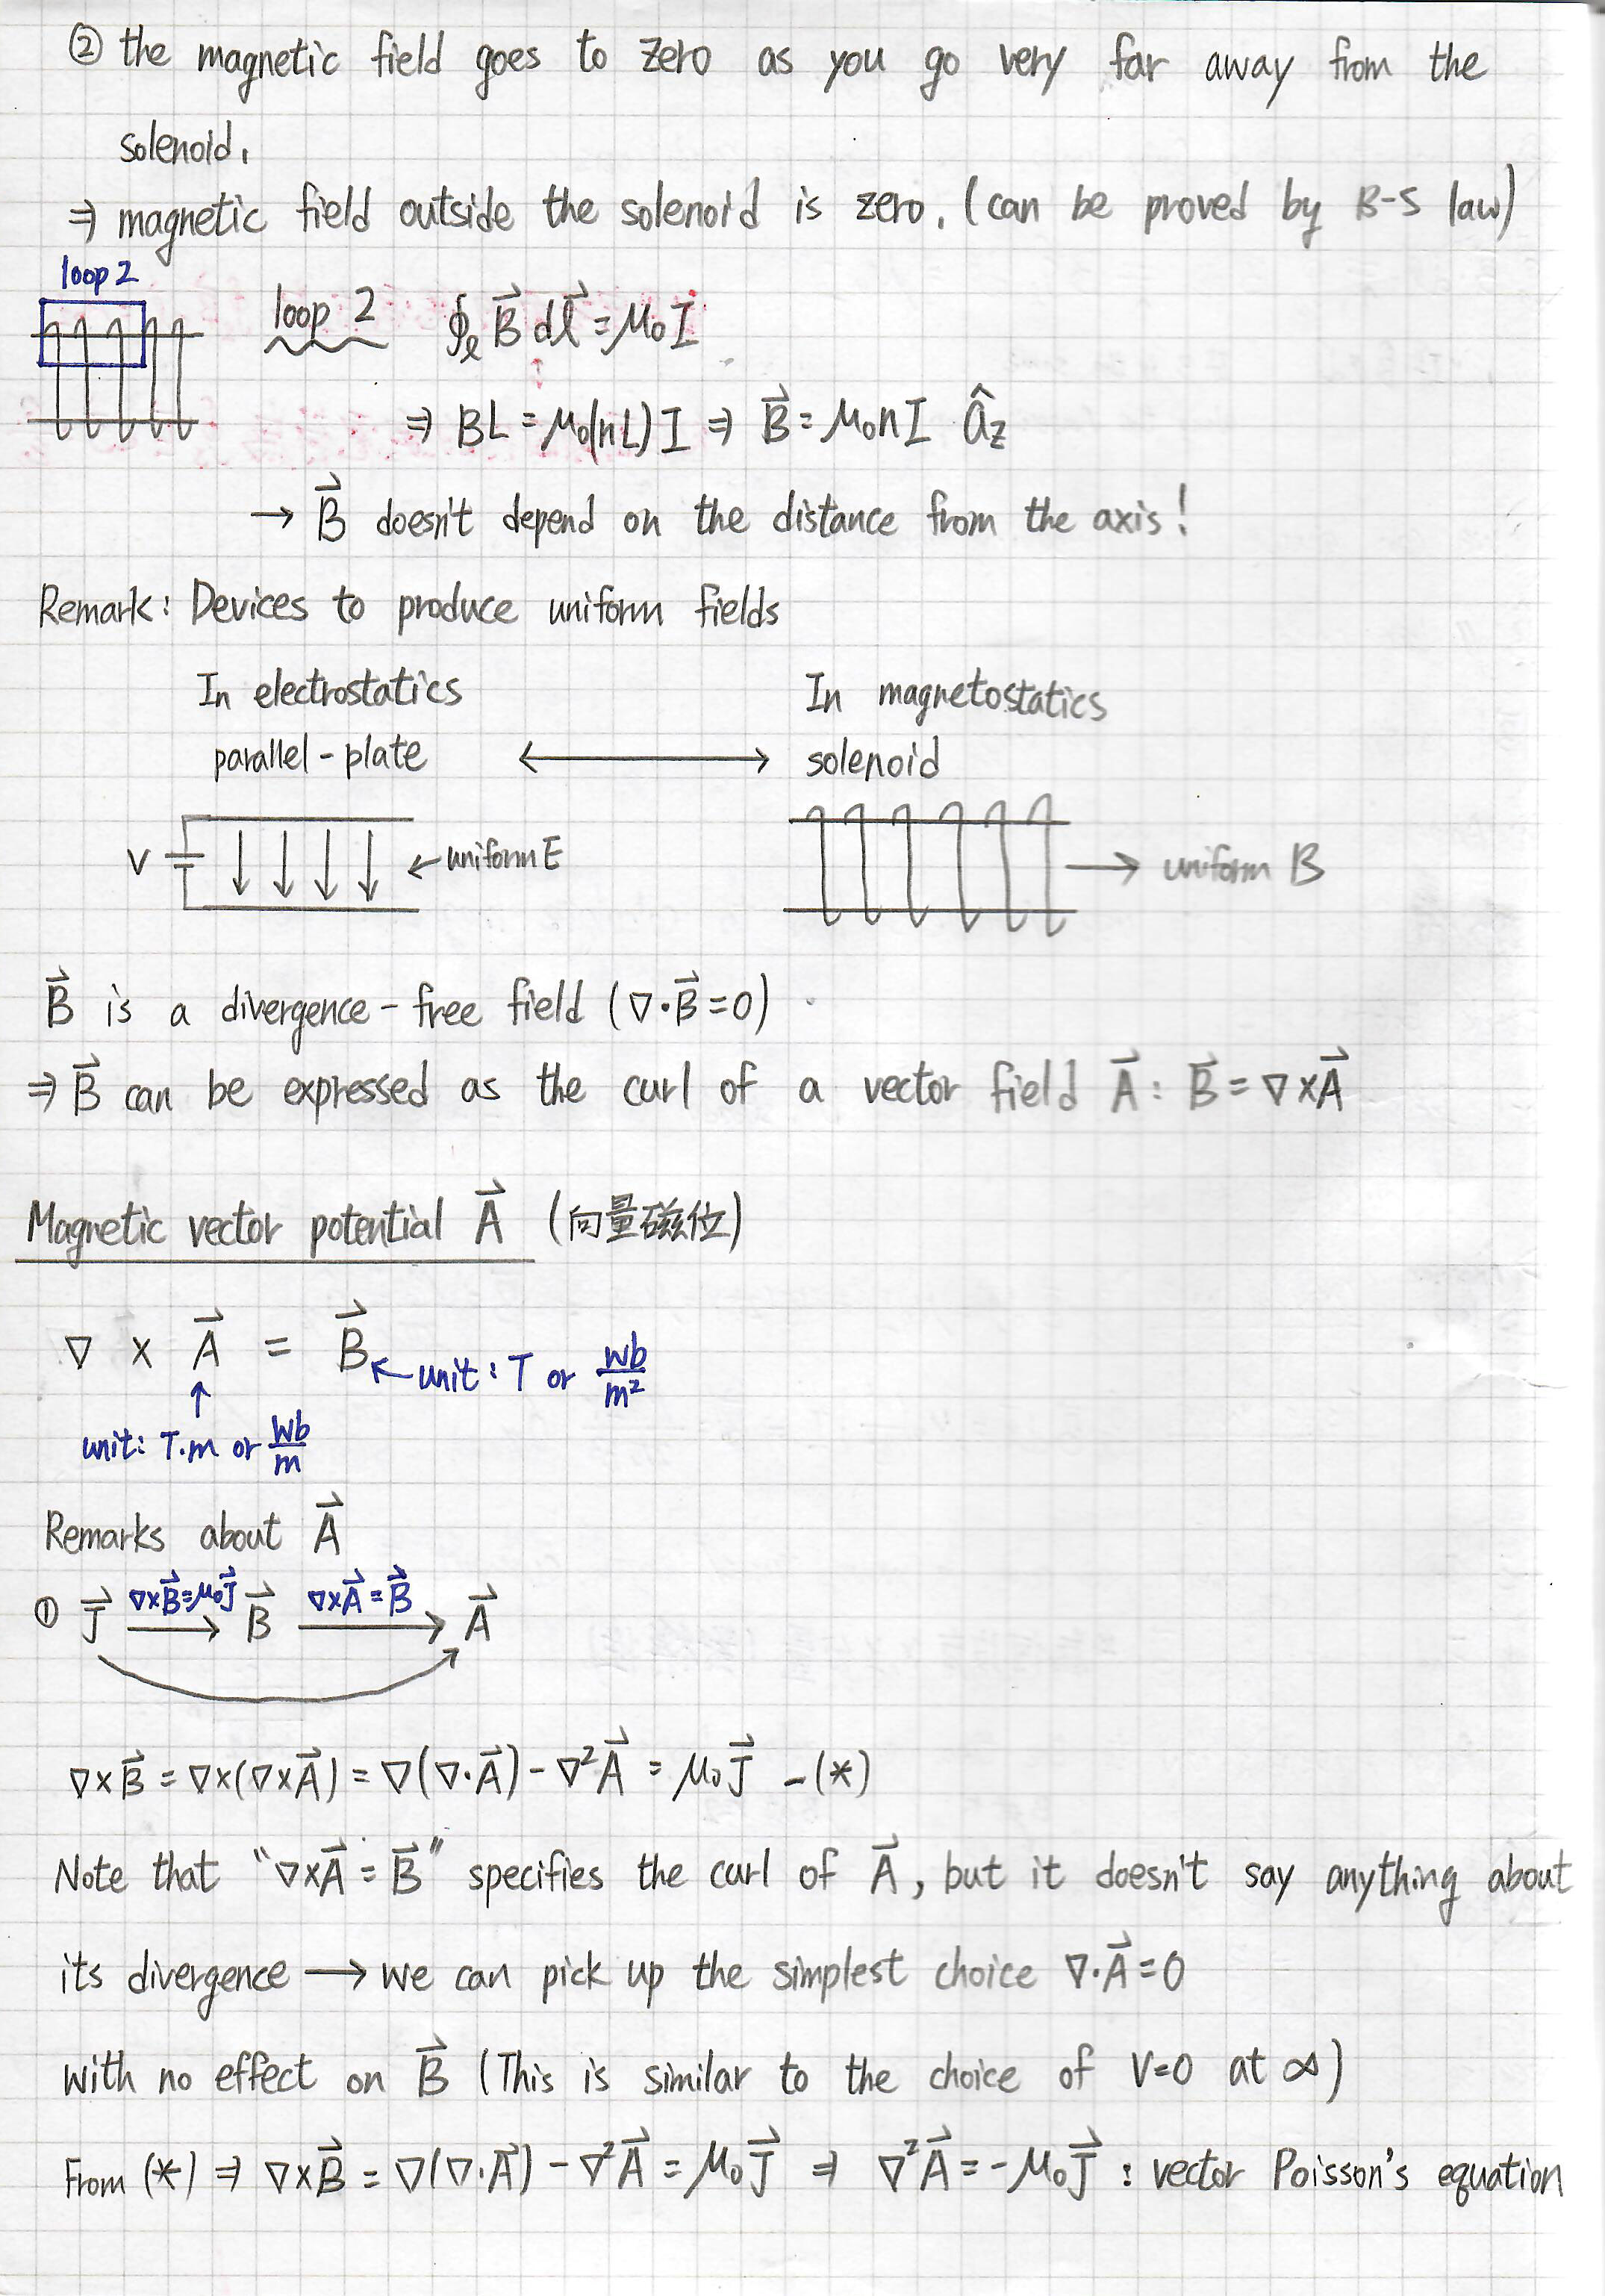 ② the magnetic field goes to zero as you go very far away from the
solenoid.
⇒ magnetic field outside the solenoid is zero. (can be proved by B-S law)
loop 2
loop 2 ∮ₗ B⃗ dl⃗ = μ₀I
⇒ BL = μ₀(nL)I ⇒ B⃗ = μ₀nI â_z
→ B⃗ doesn't depend on the distance from the axis!
Remark: Devices to produce uniform fields
In electrostatics In magnetostatics
parallel-plate ⟷ solenoid
V ← uniform E → uniform B
B⃗ is a divergence-free field (∇·B⃗=0)
⇒ B⃗ can be expressed as the curl of a vector field A⃗: B⃗ = ∇×A⃗
Magnetic vector potential A⃗ (向量磁位)
∇ × A⃗ = B⃗ ← unit: T or Wb/m²
↑
unit: T·m or Wb/m
Remarks about A⃗
∇×B⃗=μ₀J⃗ ∇×A⃗=B⃗
① J⃗ → B⃗ → A⃗
∇×B⃗ = ∇×(∇×A⃗) = ∇(∇·A⃗) - ∇²A⃗ = μ₀J⃗ -(*)
Note that "∇×A⃗ = B⃗" specifies the curl of A⃗, but it doesn't say anything about
its divergence → we can pick up the simplest choice ∇·A⃗=0
with no effect on B⃗ (This is similar to the choice of V=0 at ∞)
From (*) ⇒ ∇×B⃗ = ∇(∇·A⃗) - ∇²A⃗ = μ₀J⃗ ⇒ ∇²A⃗ = -μ₀J⃗ : vector Poisson's equation